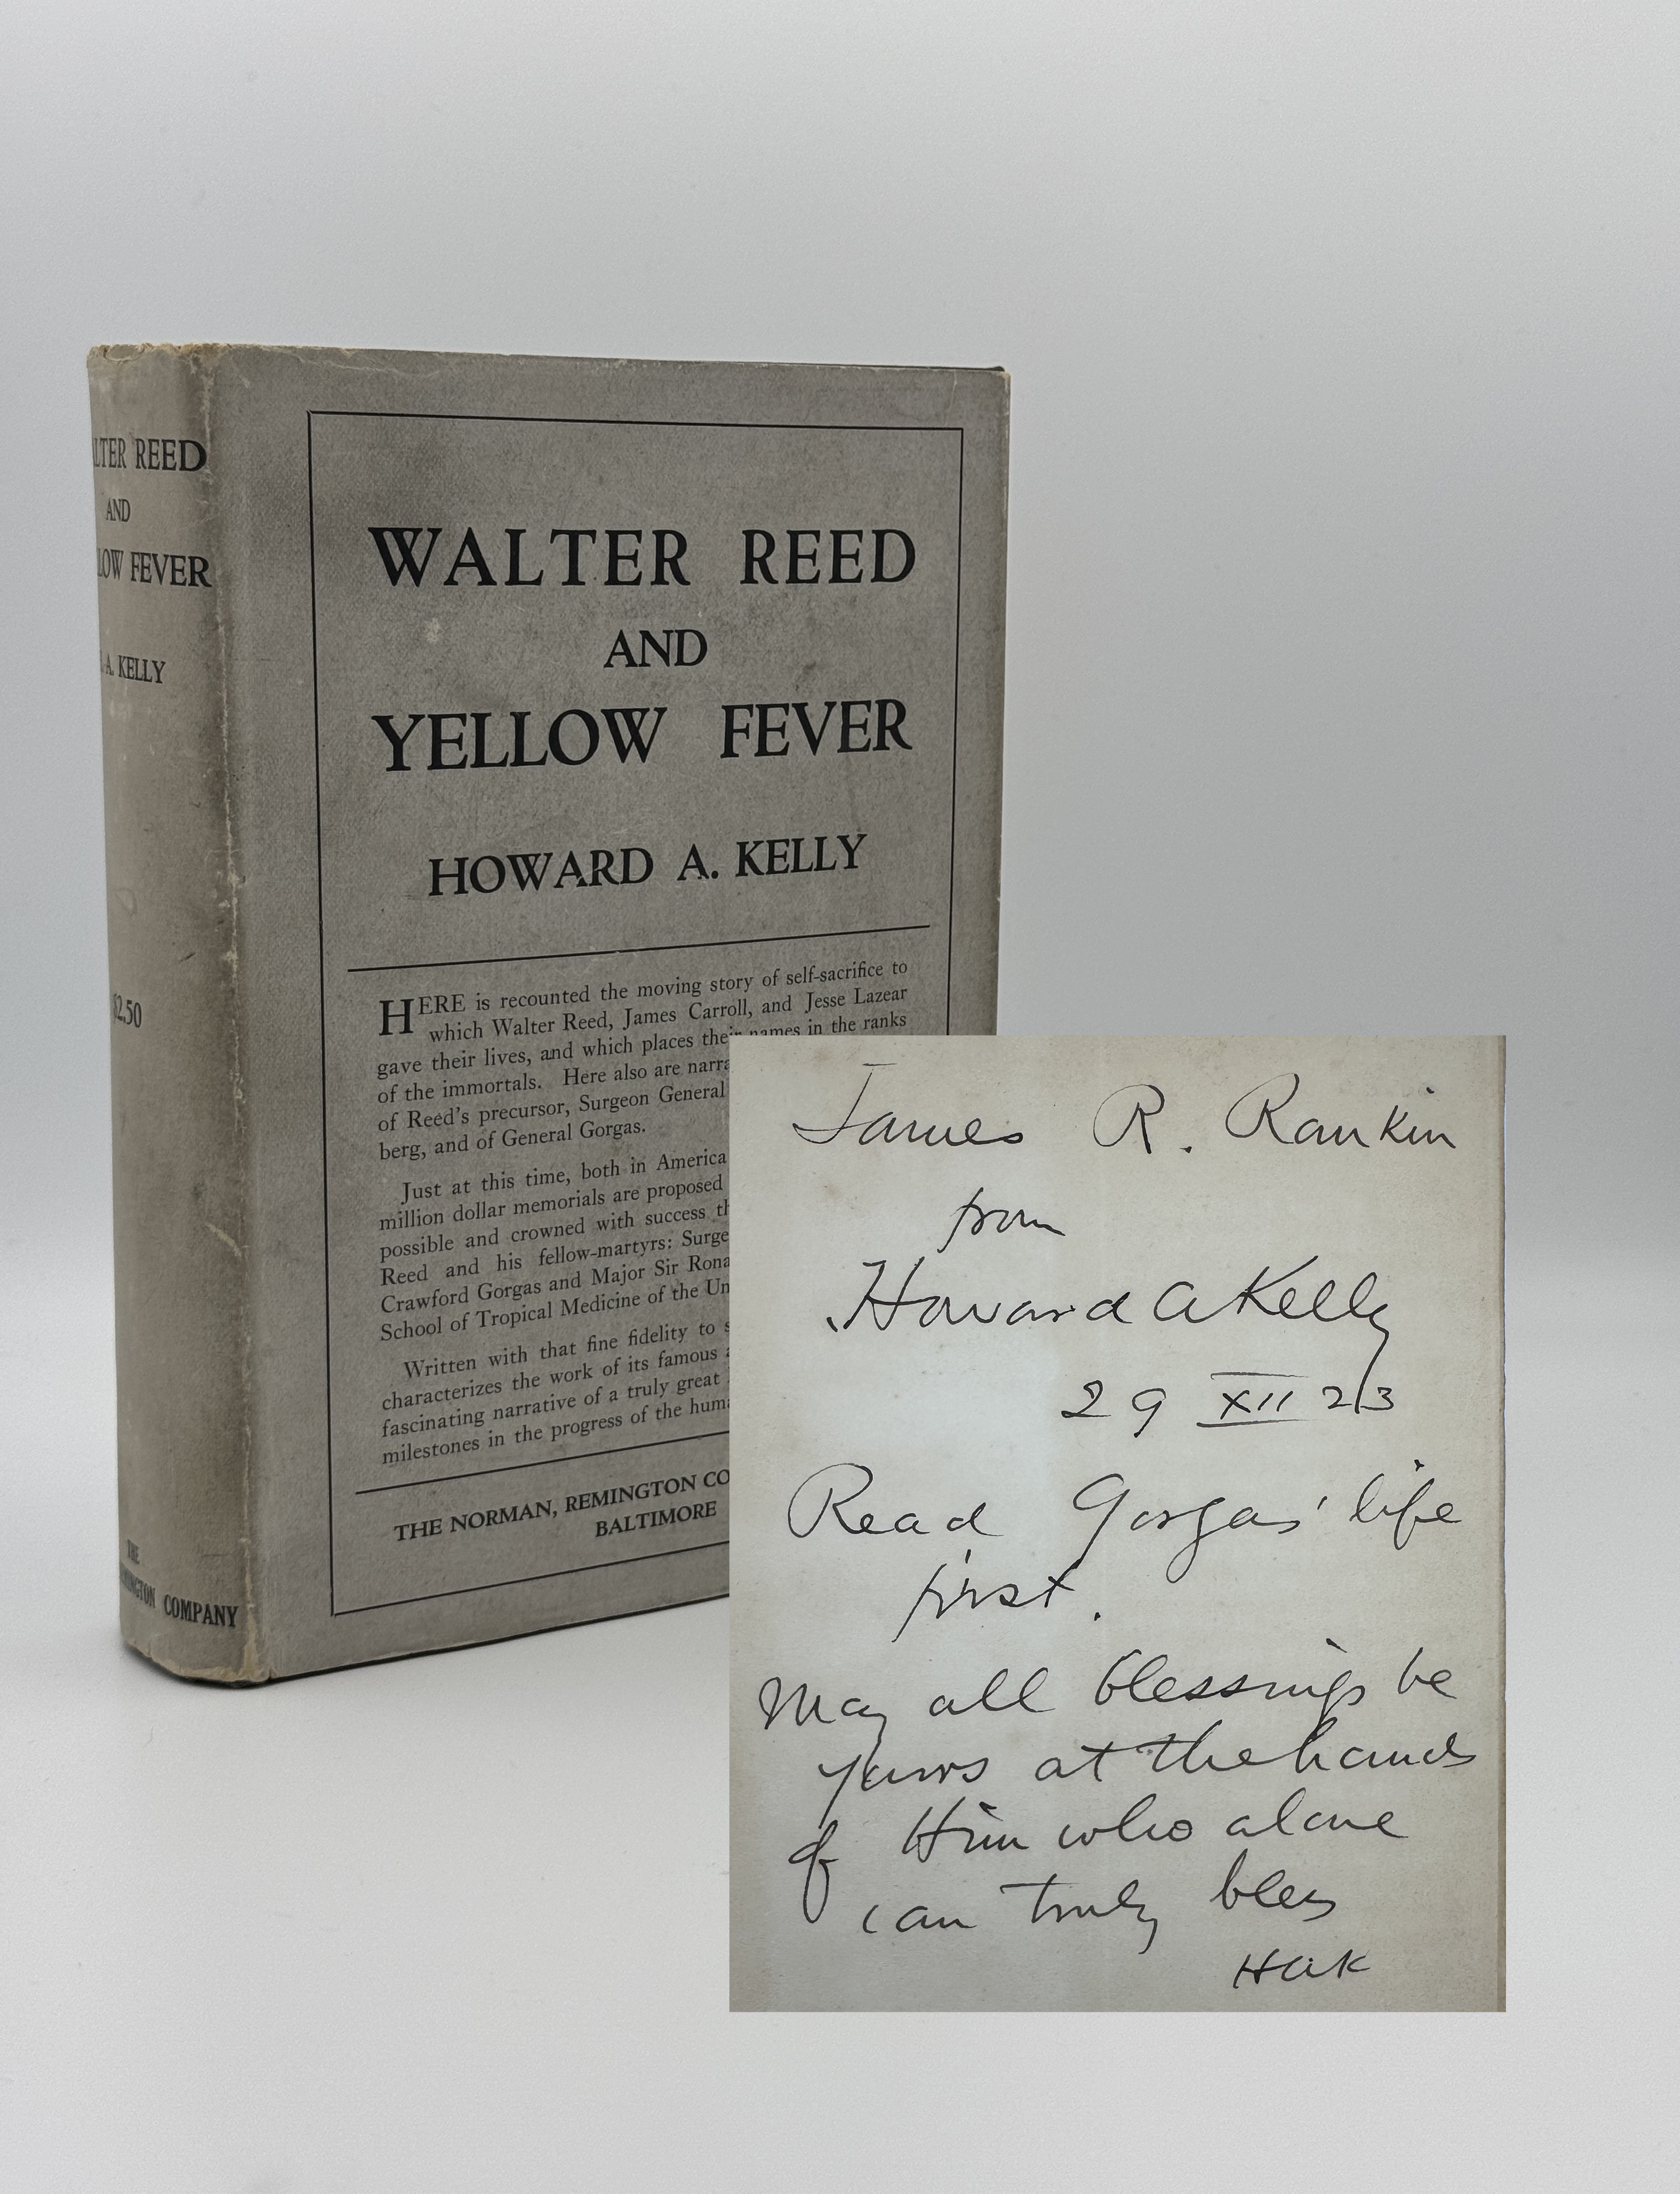 LTER REED
AND
LOW FEVER
A. KELLY
$2.50
THE
INGTON COMPANY
WALTER REED
AND
YELLOW FEVER
HOWARD A. KELLY
HERE is recounted the moving story of self-sacrifice to
which Walter Reed, James Carroll, and Jesse Lazear
gave their lives, and which places their names in the ranks
of the immortals. Here also are narra
of Reed's precursor, Surgeon General
berg, and of General Gorgas.
Just at this time, both in America
million dollar memorials are proposed
possible and crowned with success th
Reed and his fellow-martyrs: Surge
Crawford Gorgas and Major Sir Rona
School of Tropical Medicine of the Un
Written with that fine fidelity to s
characterizes the work of its famous a
fascinating narrative of a truly great
milestones in the progress of the huma
THE NORMAN, REMINGTON CO
BALTIMORE
James R. Rankin
from
Howard A Kelly
29 XII 23
Read Gorgas' life
first.
May all blessings be
yours at the hands
of Him who alone
can truly bless
HAK